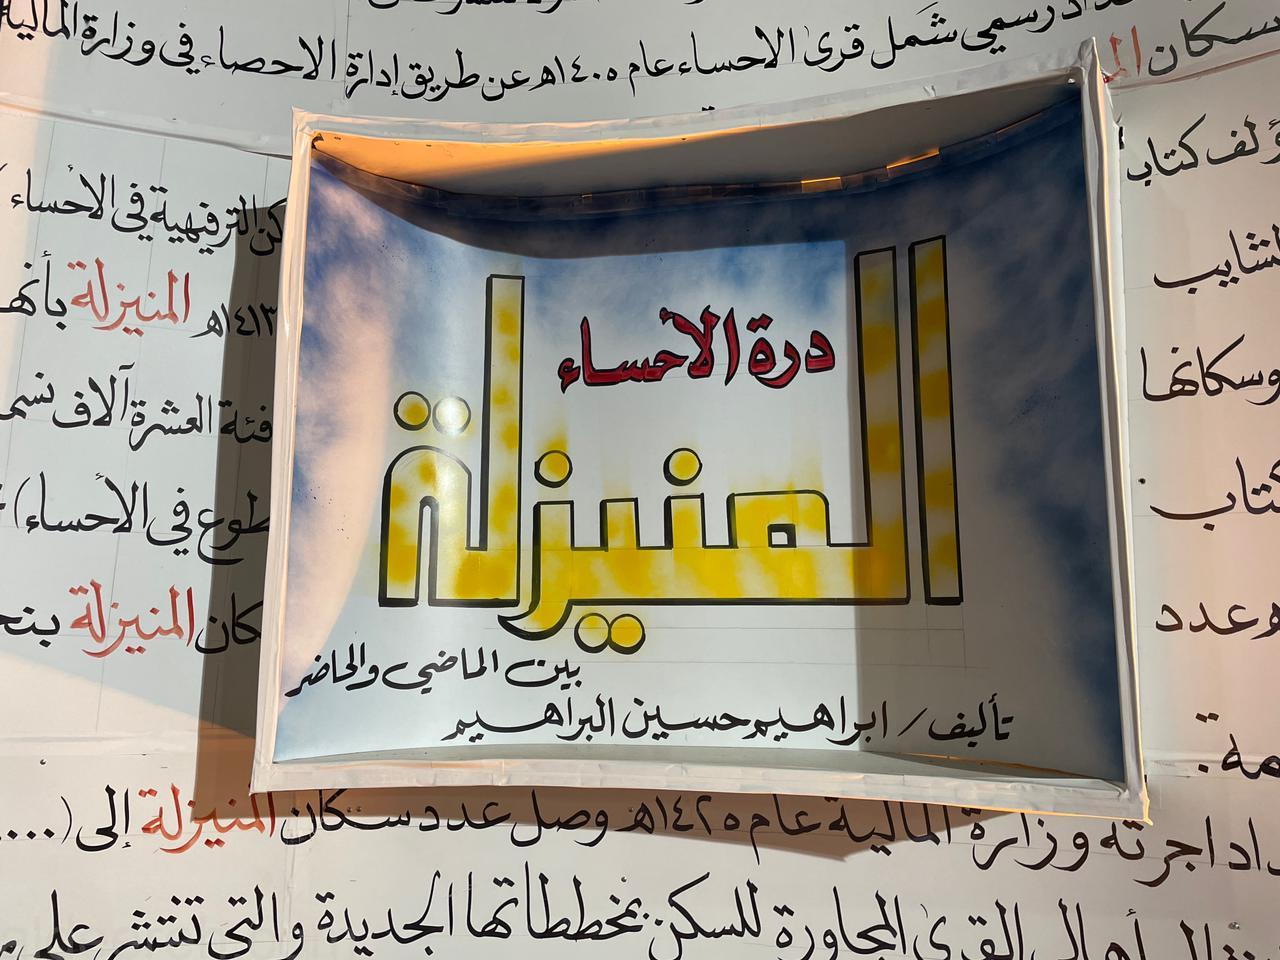 رسمي شَمل قرى الاحساء عام ١٤٠٥هـ عن طريق إدارة الاحصاء في وزارة المالية
سكان
كتاب
الترفيهية في الأحساء
١٤١٣هـ المنيزلة بأنها
فئة العشرة آلاف نسمة
في الأحساء)
المنيزلة
الشايب
وسكانها
كتاب
عدد
درة الأحساء
المنيزلة
بين الماضي والحاضر
تأليف / ابراهيم حسين البراهيم
اجرته وزارة المالية عام ١٤٢٥هـ وصل عدد سكان المنيزلة إلى (....
أهالي القرى المجاورة للسكن بمخططاتها الجديدة والتي تنتشر على